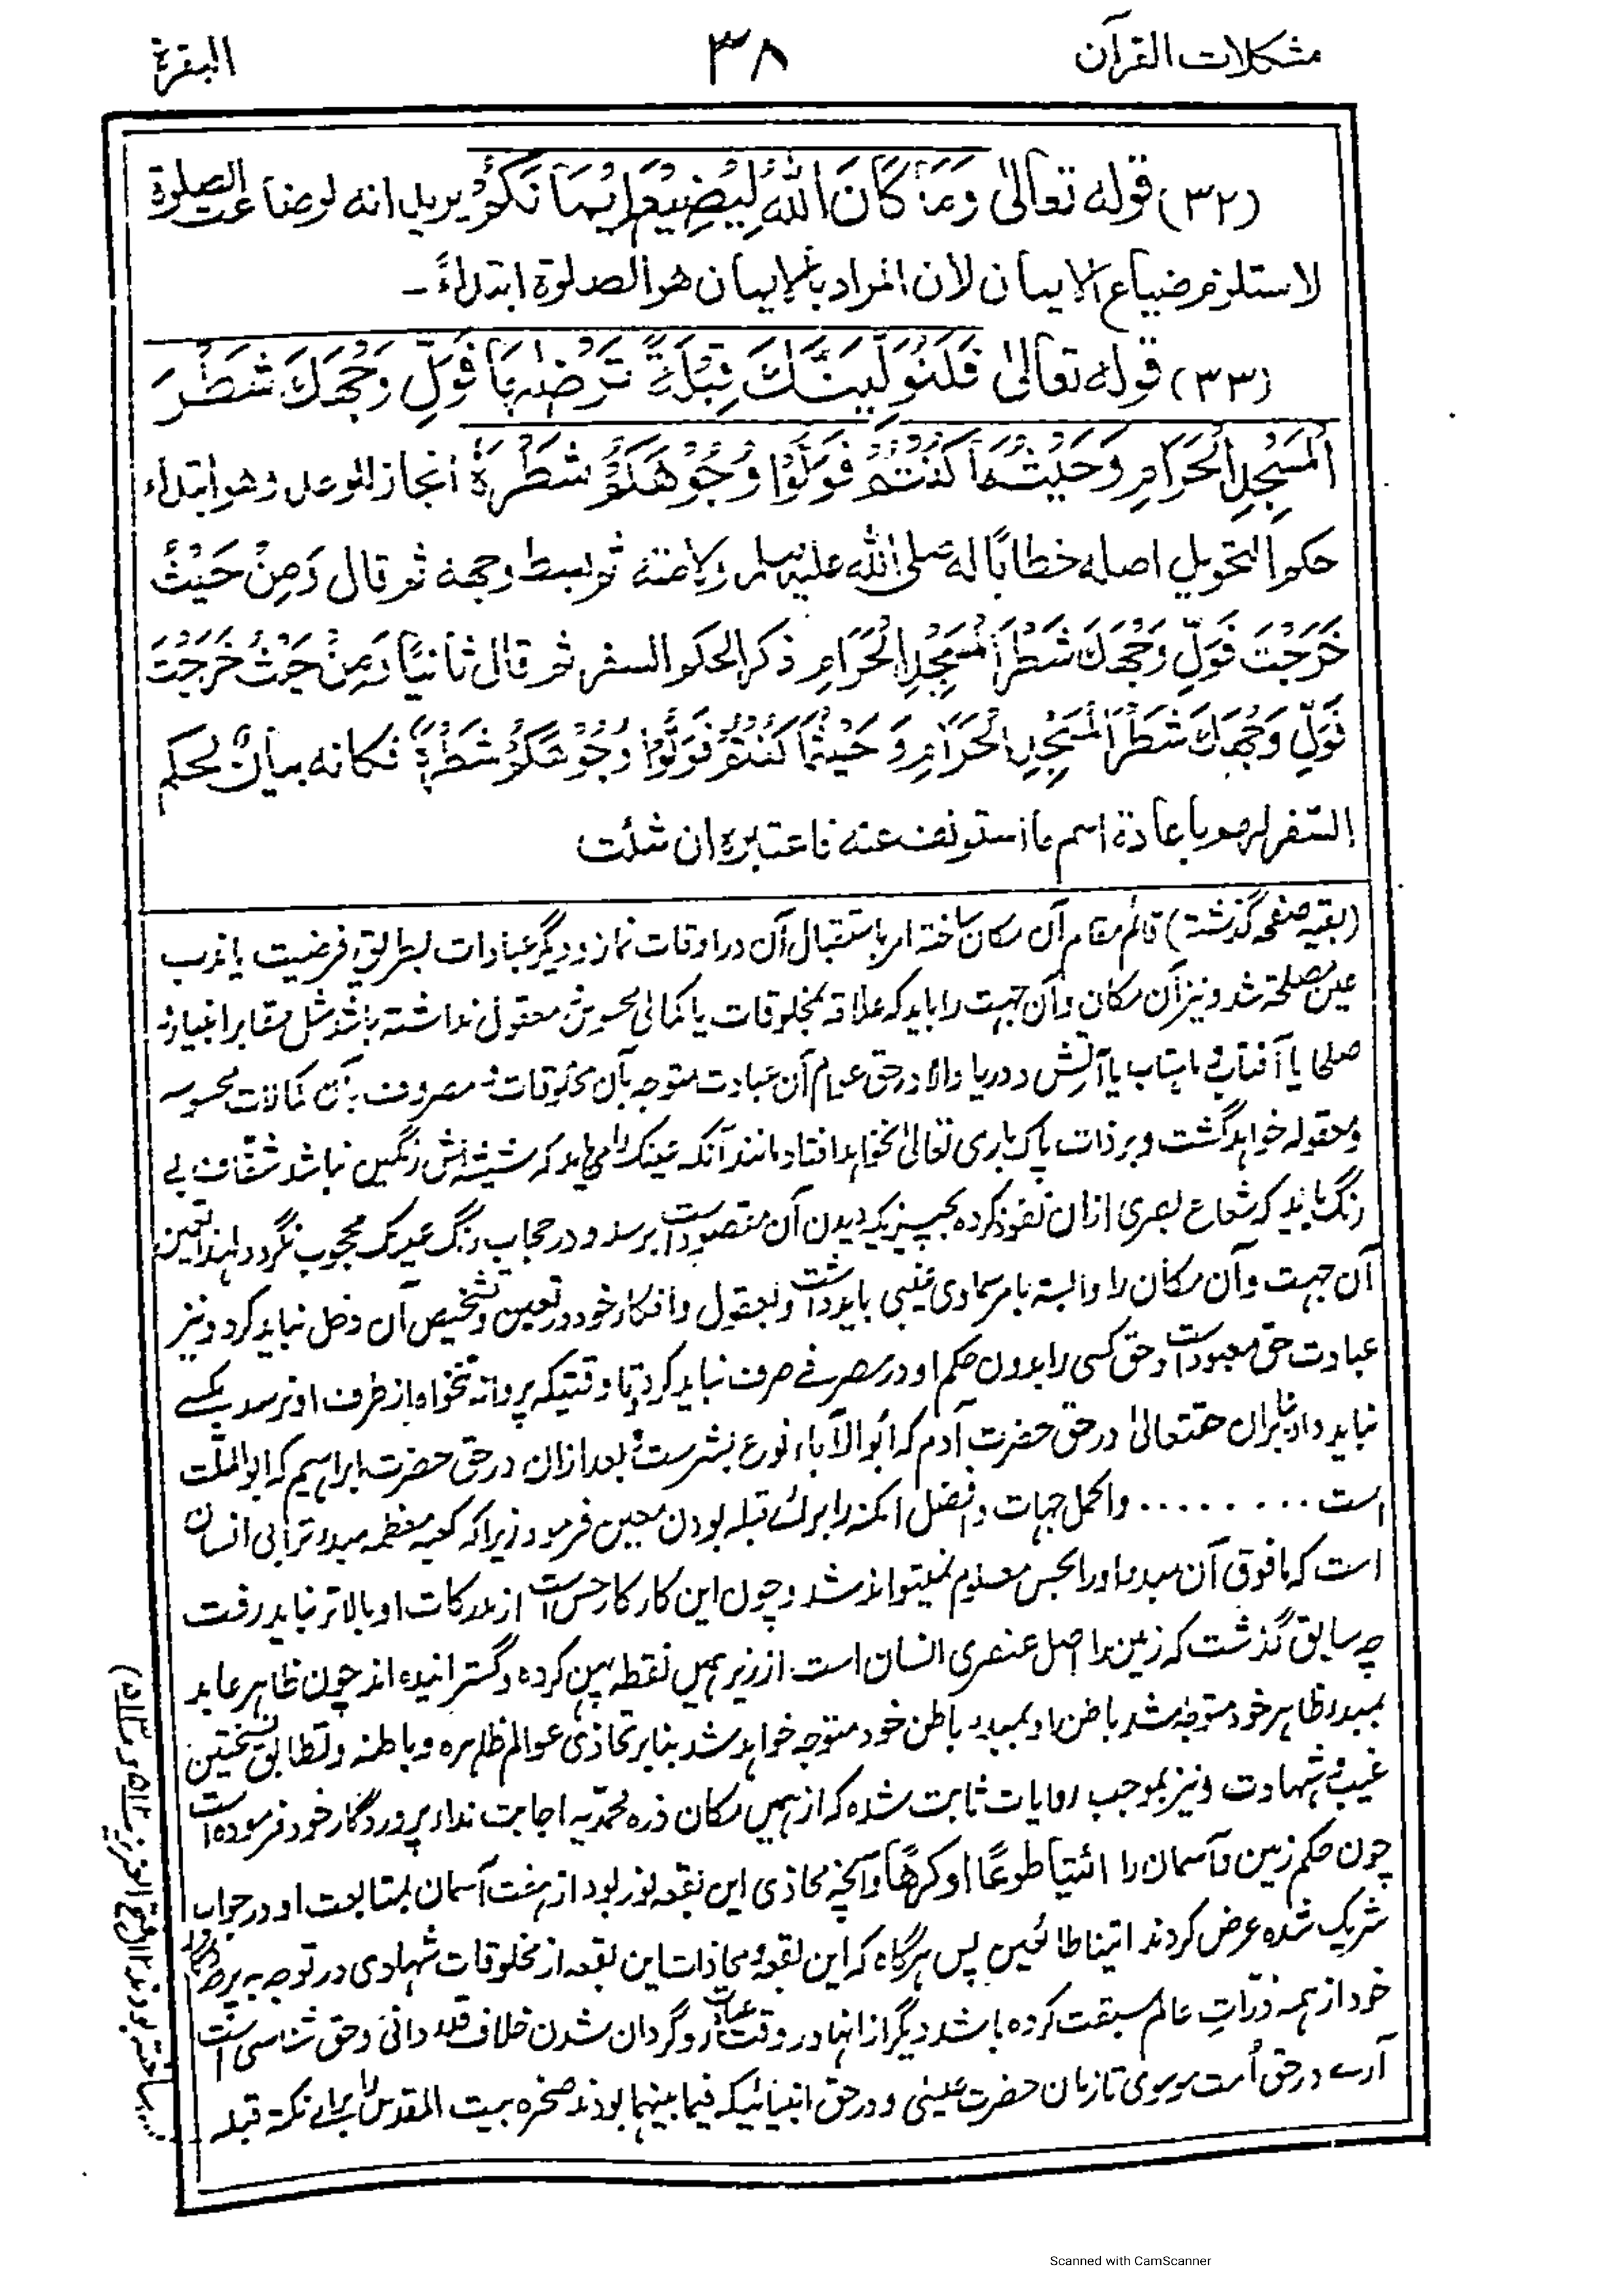 مشکلات القرآن
٣٨
البقرة
(٣٢) قوله تعالیٰ وَمَا كَانَ اللّٰهُ لِيُضِيْعَ اِيْمَانَكُمْ يريد انه لوضاعت الصلوة
لاستلزم ضياع الايمان لان المراد بالايمان هو الصلوة ابتداءً۔
(٣٣) قوله تعالیٰ فَلَنُوَلِّيَنَّكَ قِبْلَةً تَرْضٰىهَا فَوَلِّ وَجْهَكَ شَطْرَ
الْمَسْجِدِ الْحَرَامِ وَحَيْثُ مَا كُنْتُمْ فَوَلُّوْا وُجُوْهَكُمْ شَطْرَهٗ انجاز للوعد وهو ابتداء
حكم التحويل اصله خطابًا له صلى الله عليه وسلم ولامته ثم بسط وجهه ثم قال وَمِنْ حَيْثُ
خَرَجْتَ فَوَلِّ وَجْهَكَ شَطْرَ الْمَسْجِدِ الْحَرَامِ ذكر الحكم السفر ثم قال ثانيًا وَمِنْ حَيْثُ خَرَجْتَ
فَوَلِّ وَجْهَكَ شَطْرَ الْمَسْجِدِ الْحَرَامِ وَحَيْثُ مَا كُنْتُمْ فَوَلُّوْا وُجُوْهَكُمْ شَطْرَهٗ فكانه بيانٌ لحكم
السفر لهم باعادة اسم ما استونف عنه فاعتبره ان شئت
(بقیه صفحه گذشته) قائم مقام آن مکان ساخته امر باستقبال آن در اوقات نماز و دیگر عبادات بطریق فرضیت یا ندب
عین مصلحة شد و نیز آن مکان و آن جهت را باید که علاقه بمخلوقات یا کمالی محسوس معقول نداشته باشد مثل مقابر انبیاء و
صلحا یا آفتاب و ماهتاب یا آتش و دریا والا در حق عوام آن عبادت متوجه بآن مخلوقات و مصروف بآن کمالات محسوسه
و معقوله خواهد گشت و بر ذات پاک باری تعالیٰ نخواهد افتاد مانند آنکه عینک را می باید که شیشه اش رنگین نباشد شفاف بے
رنگ باید که شعاع بصری ازان نفوذ کرده بچیزیکه دیدن آن مقصود است برسد و در حجاب رنگ عینک محجوب نگردد لهذا تعین
آن جهت و آن مکان را وابسته بامر سماوی غیبی باید داشت و بعقول و افکار خود در تعین و تشخیص آن دخل نباید کرد و نیز
عبادت حق معبود است و حق کسی را بدون حکم او در مصرفے صرف نباید کرد و تا وقتیکه پروانه تنخواه از طرف او نرسد بکسے
نباید داد بنابران حقتعالیٰ در حق حضرت آدم که ابوالآباء نوع بشر ست و بعد ازان در حق حضرت ابراهیم که ابوالملت
است ......... واکمل جهات و افضل امکنه را برائے قبله بودن معین فرمود زیرا که کعبه معظمه مبدء ترابی انسان
است که مافوق آن مبدء اورا بحس معلوم نمیتواند شد و چون این کار کار حس است از مدرکات او بالاتر نباید رفت
چه سابق گذشت که زمین را اصل عنصری انسان است از زیر همیں نقطه پهن کرده و گسترانیده اند چون ظاهر عابد
بمبدء ظاهر خود متوجه شد باطن او بمبدء باطن خود متوجه خواهد شد بنابر تحاذی عوالم ظاهره و باطنه و تطابق نسختین
غیب و شهادت و نیز بموجب روایات ثابت شده که از همیں مکان ذره محمدیه اجابت نداء پروردگار خود فرموده است
چون حکم زمین و آسمان را ائتیا طوعًا او کرهًا و آنچه محاذی این بقعه نور بود از هفت آسمان بمتابعت او در جواب
شریک شده عرض کردند اتینا طائعین پس هرگاه که این بقعه و محاذات این بقعه از مخلوقات شهادی در توجه به پروردگار
خود از همه ذرّاتِ عالم سبقت کرده باشد دیگر از انها در وقت عبادت روگردان شدن خلاف قدر دانی و حق شناسی است
آرے در حق اُمت موسوی تا زمان حضرت عیسیٰ و در حق انبیائیکه فیما بینهما بودند صخره بیت المقدس را برائے نکته قبله
ساخته بودند ١٢ (فتح العزیز
Scanned with CamScanner